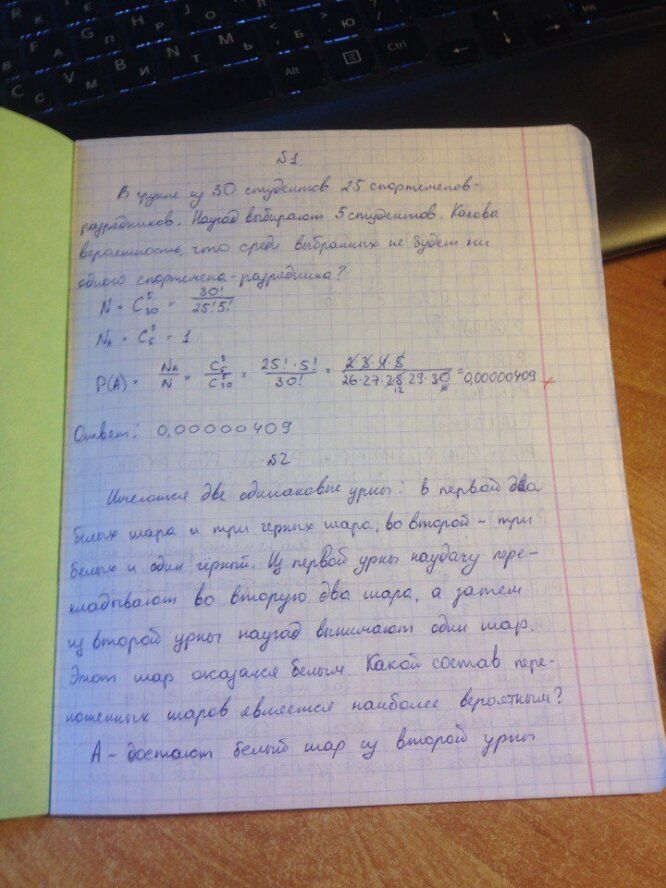 №1.
В группе из 30 студентов 25 спортсменов-
разрядников. Наугад выбирают 5 студентов. Какова
вероятность, что среди выбранных не будет ни
одного спортсмена-разрядника?
N = C₃₀⁵ = 30! / 25!5!
Nₐ = C₅⁵ = 1
P(A) = Nₐ / N = C₅⁵ / C₃₀⁵ = 25!·5! / 30! = 2·3·4·5 / 26·27·28·29·30 = 0,00000409
Ответ: 0,00000409
№2
Имеются две одинаковые урны: в первой два
белых шара и три черных шара, во второй - три
белых и один чёрный. Из первой урны наудачу пере-
кладывают во вторую два шара, а затем
из второй урны наугад вынимают один шар.
Этот шар оказался белым. Какой состав пере-
ложенных шаров является наиболее вероятным?
А - достают белый шар из второй урны
Alt
Ctrl
Ins